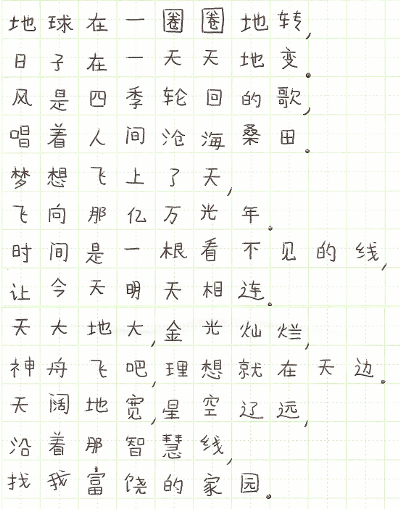 地球在一圈圈地转,
日子在一天天地变。
风是四季轮回的歌,
唱着人间沧海桑田。
梦想飞上了天,
飞向那亿万光年。
时间是一根看不见的线,
让今天明天相连。
天大地大,金光灿烂,
神舟飞吧,理想就在天边。
天阔地宽,星空辽远,
沿着那智慧线,
找我富饶的家园。